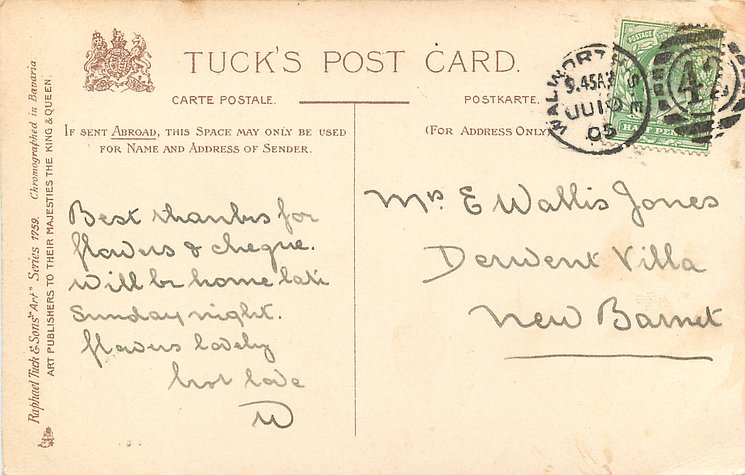 TUCK'S POST CARD.
CARTE POSTALE.
POSTKARTE.
IF SENT ABROAD, THIS SPACE MAY ONLY BE USED
FOR NAME AND ADDRESS OF SENDER.
(FOR ADDRESS ONLY)
Raphael Tuck & Sons' "Art" Series 1759. Chromographed in Bavaria.
ART PUBLISHERS TO THEIR MAJESTIES THE KING & QUEEN.
POSTAGE
WALWORTH S E
9.45AM
JU
05
42
Best thanks for
flowers & cheque.
Will be home late
Sunday night.
flowers lovely
best love
W
Mrs E Wallis Jones
Derwent Villa
New Barnet